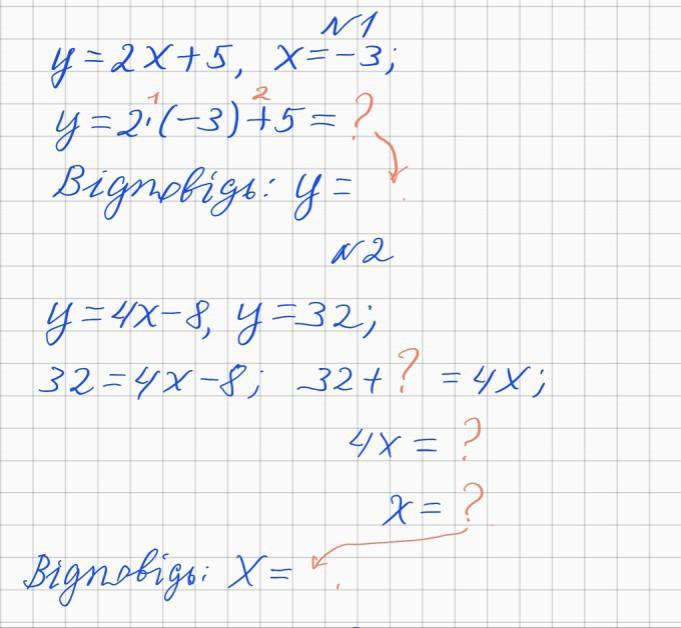 N1
y=2x+5, x=-3;
1 2
y=2·(-3)+5=?
Відповідь: y=   .
N2
y=4x-8, y=32;
32=4x-8; 32+? =4x;
4x= ?
x= ?
Відповідь: x=   .